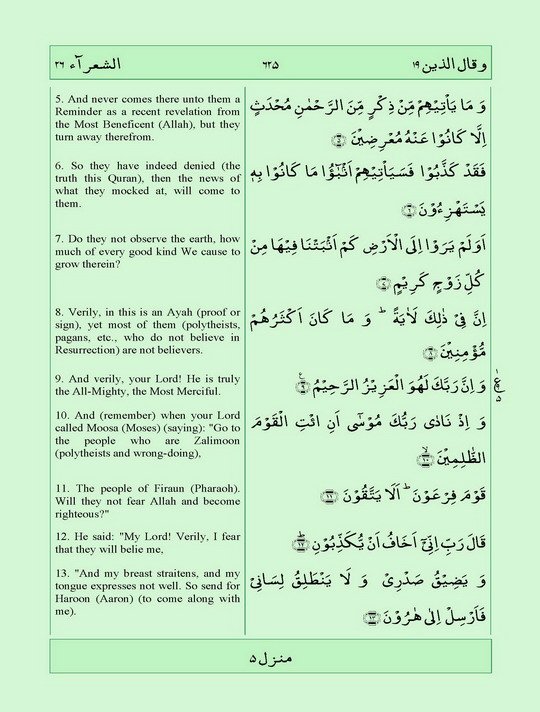 الشعرآء ٢٦
٦٢٥
وقال الذين ١٩
5. And never comes there unto them a
Reminder as a recent revelation from
the Most Beneficent (Allah), but they
turn away therefrom.
وَ مَا يَاْتِيْهِمْ مِّنْ ذِكْرٍ مِّنَ الرَّحْمٰنِ مُحْدَثٍ
اِلَّا كَانُوْا عَنْهُ مُعْرِضِيْنَ ۝٥
6. So they have indeed denied (the
truth this Quran), then the news of
what they mocked at, will come to
them.
فَقَدْ كَذَّبُوْا فَسَيَاْتِيْهِمْ اَنْۢبٰٓؤُا مَا كَانُوْا بِهٖ
يَسْتَهْزِءُوْنَ ۝٦
7. Do they not observe the earth, how
much of every good kind We cause to
grow therein?
اَوَلَمْ يَرَوْا اِلَى الْاَرْضِ كَمْ اَنْۢبَتْنَا فِيْهَا مِنْ
كُلِّ زَوْجٍ كَرِيْمٍ ۝٧
8. Verily, in this is an Ayah (proof or
sign), yet most of them (polytheists,
pagans, etc., who do not believe in
Resurrection) are not believers.
اِنَّ فِيْ ذٰلِكَ لَاٰيَةً ؕ وَ مَا كَانَ اَكْثَرُهُمْ
مُّؤْمِنِيْنَ ۝٨
9. And verily, your Lord! He is truly
the All-Mighty, the Most Merciful.
وَ اِنَّ رَبَّكَ لَهُوَ الْعَزِيْزُ الرَّحِيْمُ ۝٩
10. And (remember) when your Lord
called Moosa (Moses) (saying): "Go to
the people who are Zalimoon
(polytheists and wrong-doing),
وَ اِذْ نَادٰى رَبُّكَ مُوْسٰٓى اَنِ ائْتِ الْقَوْمَ
الظّٰلِمِيْنَ ۝١٠
11. The people of Firaun (Pharaoh).
Will they not fear Allah and become
righteous?"
قَوْمَ فِرْعَوْنَ ؕ اَلَا يَتَّقُوْنَ ۝١١
12. He said: "My Lord! Verily, I fear
that they will belie me,
قَالَ رَبِّ اِنِّيْٓ اَخَافُ اَنْ يُّكَذِّبُوْنِ ۝١٢
13. "And my breast straitens, and my
tongue expresses not well. So send for
Haroon (Aaron) (to come along with
me).
وَ يَضِيْقُ صَدْرِيْ وَ لَا يَنْطَلِقُ لِسَانِيْ
فَاَرْسِلْ اِلٰى هٰرُوْنَ ۝١٣
منزل ٥